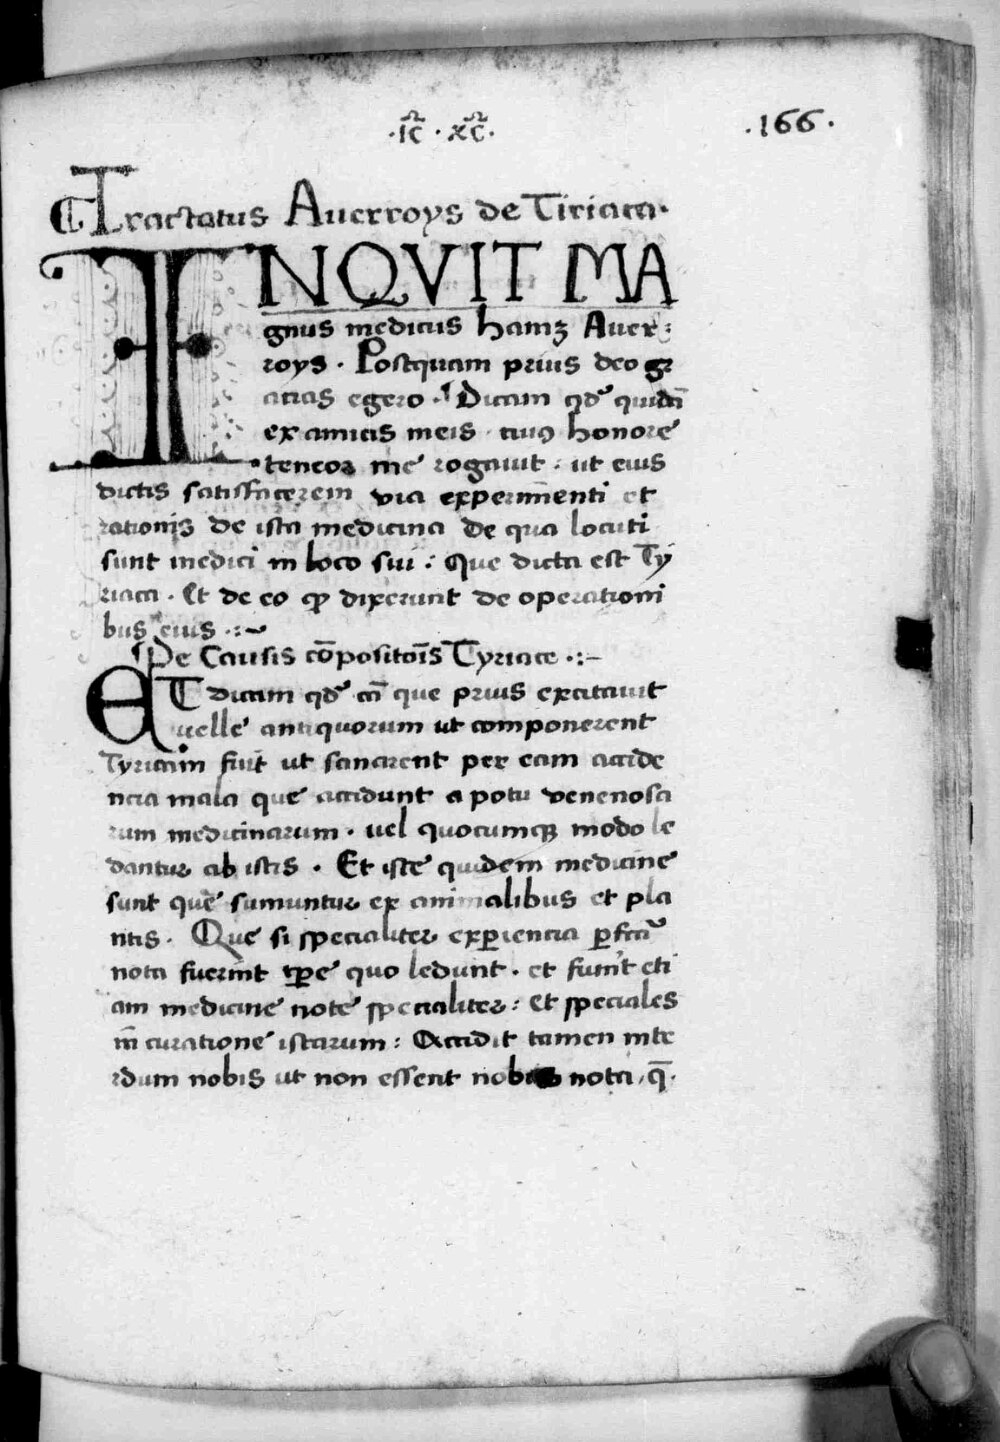 ·IC̄·XC̄·
·166·
Tractatus Auerroys de Tiriaca·
INQVIT MA
gnus medicus hamꝫ Auer:
roys · Postquam prius deo gr̄
acias egero · Dicam qd' quidā
ex amicis meis cuiꝯ honore
teneor me rogauit : ut eius
dictis satisfacerem via experim̄enti et
rationiꝫ de ista medicina de qua locuti
sunt medici in loco sui : Que dicta est Ty
riaca · Et de eo ꝙ dixerunt de operationi
bus eius ·:~
De Causis cōpositōis Tyriace ·:-
ET dicam qd' cā que prius excitauit
uelle antiquorum ut componerent
Tyriacam fuit ut sanarent per eam accide
ncia mala que accidunt a potu venenosa
rum medicinarum · uel quocumqꝫ modo le
dantur ab istis · Et iste quidem medicine
sunt que sumuntur ex animalibus et pla
ntis · Que si specialiter exꝑiencia ꝑfctā
nota fuerint tꝑe quo ledunt · et fuīt eti
am medicine note specialiter : et speciales
in curatione istarum : Accidit tamen inte
rdum nobis ut non essent nobis nota, q̄·